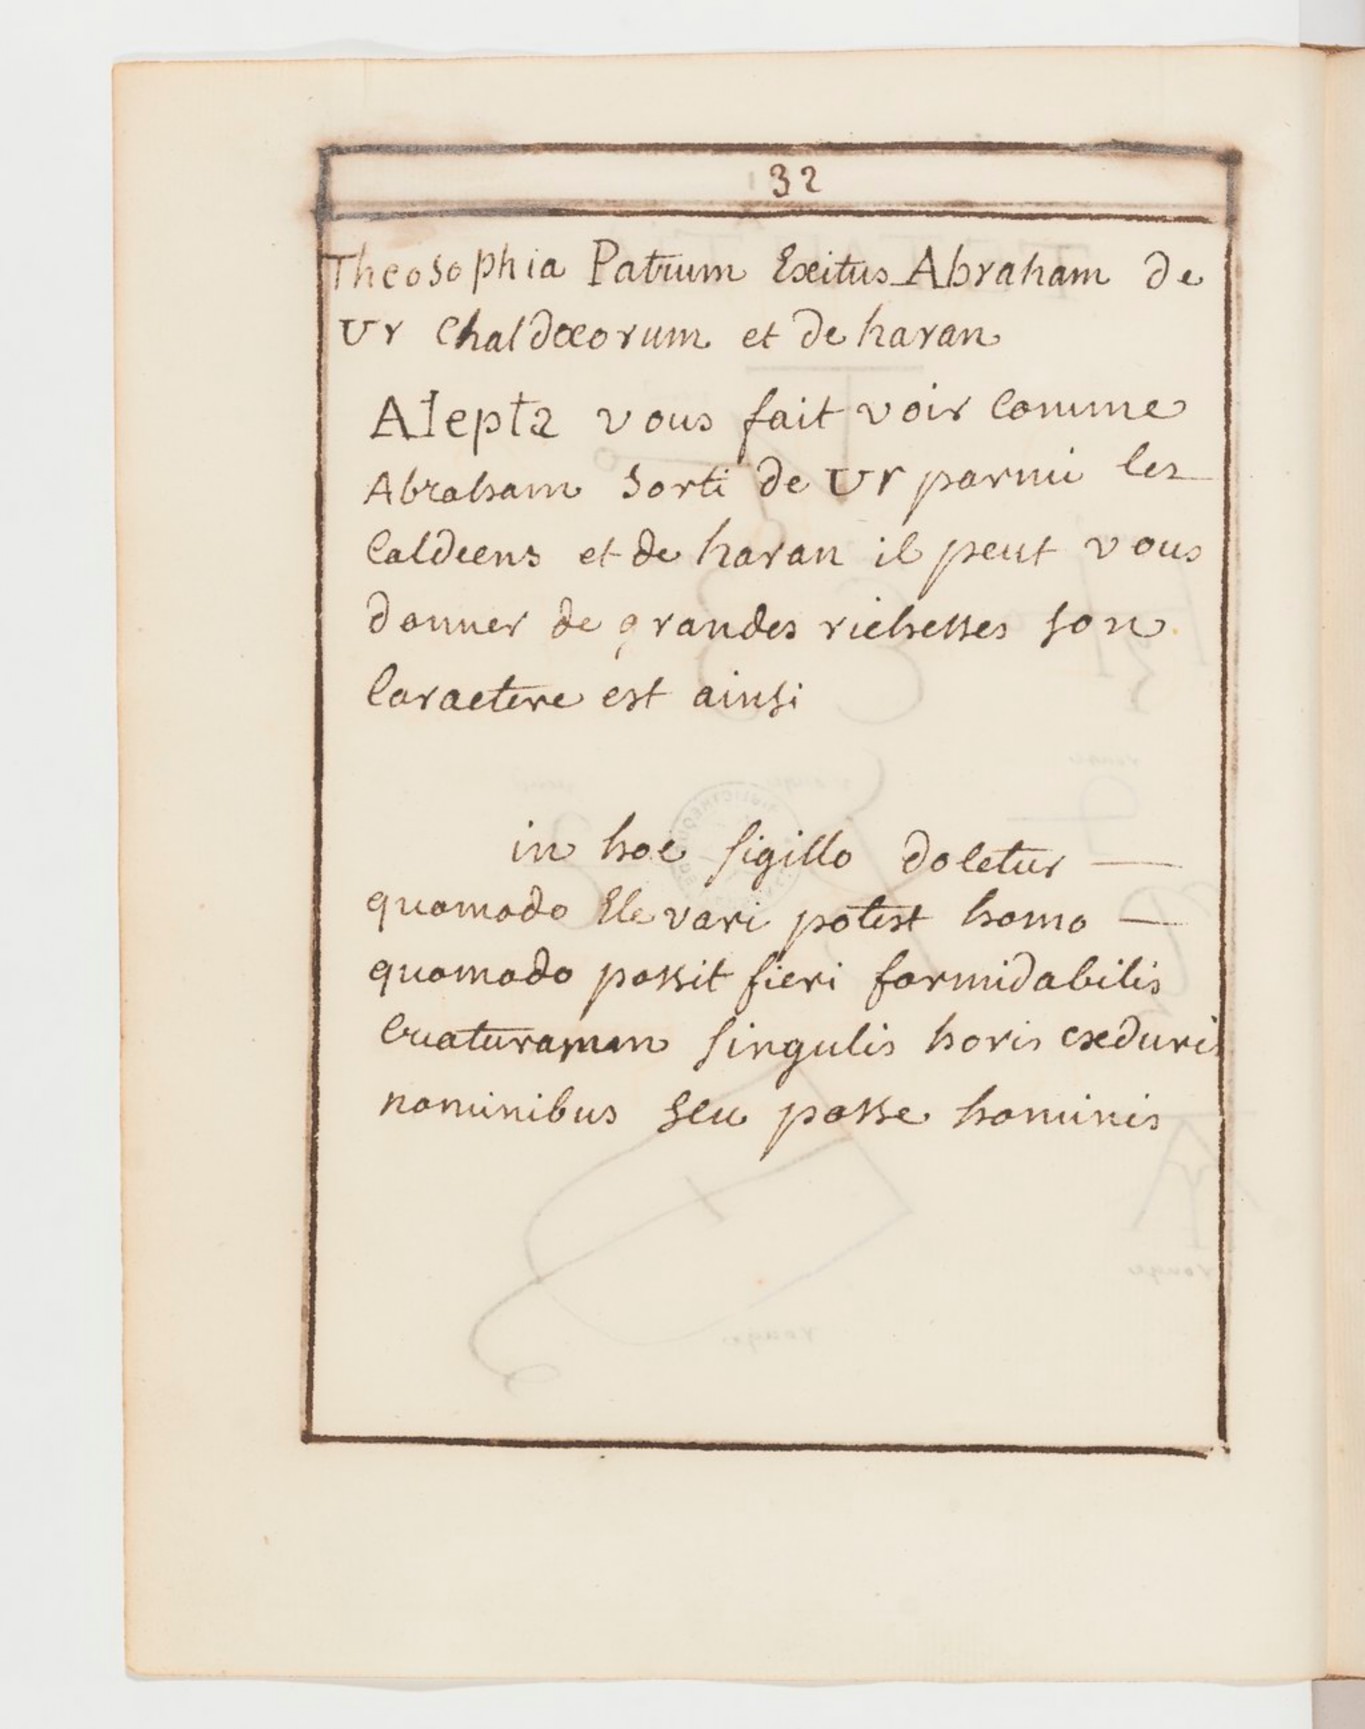 32
Theosophia Patrum Exitus Abraham de
Ur Chaldœorum et de haran
Alepta vous fait voir comme
Abraham Sorti de Ur parmi les
Caldeens et de haran il peut vous
donner de grandes richesses son
Caractere est ainsi
in hoc sigillo doletur —
quomodo Elevari potest homo —
quomodo possit fieri formidabilis
singulis horis exduris
nominibus seu posse hominis